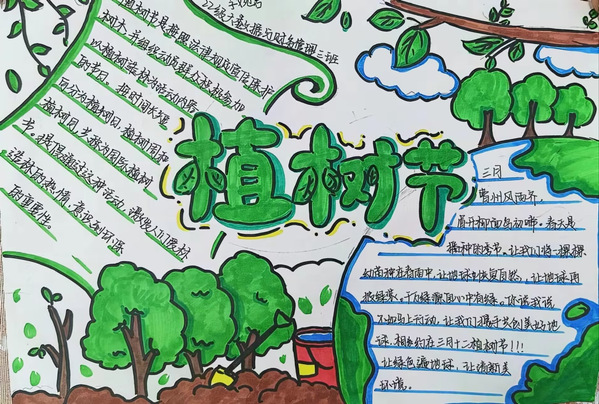 22级大数据与财务管理三班
植树节是按照法律规定宣传保护
树木,并组织动员群众积极参加
以植树造林为活动内容
的节日。按时间长短
可分为植树日、植树周和
植树月,总称为国际植树
节。提倡通过这种活动,激发人们爱林
造林的热情,意识到环保
的重要性。
植树节
三月
贵州风雨齐,
看开柳面鸟初啼。春天是
播种的季节,让我们将一棵棵
幼苗种在春雨中,让地球恢复自然,让地球再
披绿装。千万绿意心中有绿,你说我说
不如马上行动,让我们携手共创美好地
球,相约在三月十二植树节!!!
让绿色遍地球,让清新美
环境。